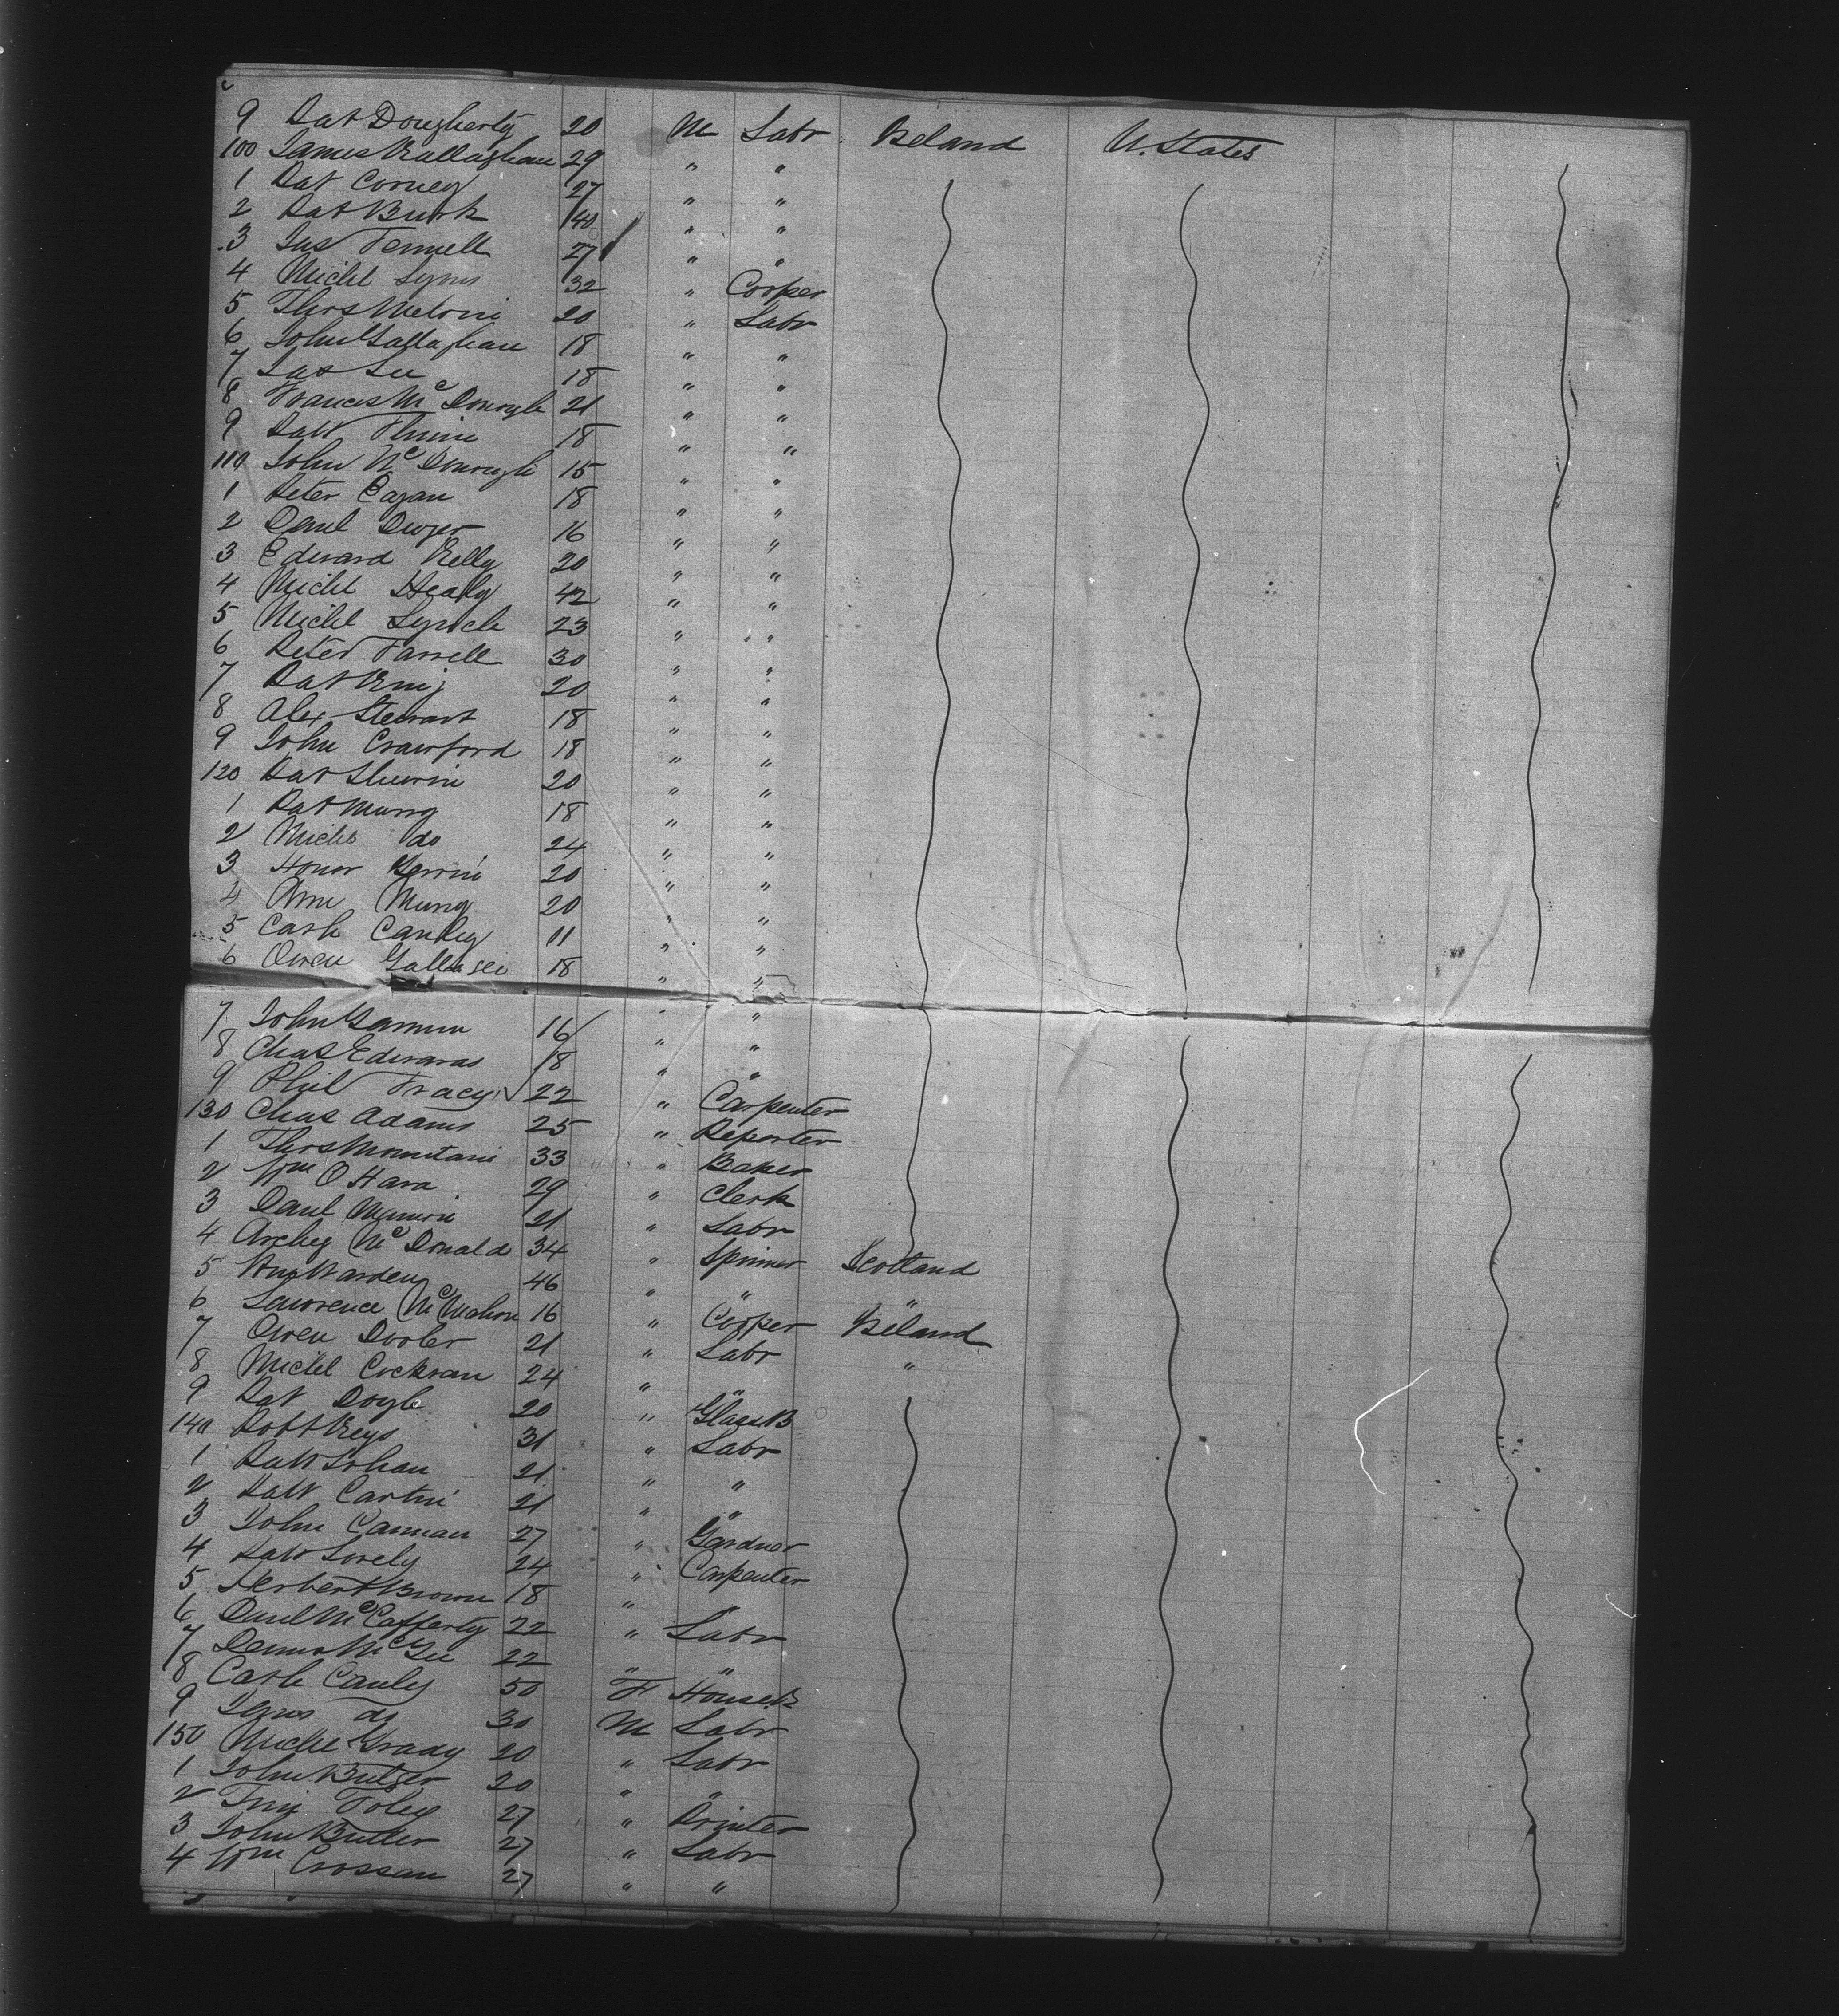 9 Pat Dougherty 20 M Labr Ireland U. States
100 James Kallaghan 29 " "
1 Pat Corney 27 " "
2 Pat Burk 40 " "
3 Jas Fennell 27 " "
4 Michl Lyons 32 " Cooper
5 Thos Meloni 20 " Labr
6 John Gallaghan 18 " "
7 Jas Lee 18 " "
8 Frances McDonogh 21 " "
9 Patk 18 " "
110 John McDonough 15 " "
1 Peter Eagan 18 " "
2 Danl Dwyer 16 " "
3 Edward Kelly 20 " "
4 Michl Healy 42 " "
5 Michl Lynch 23 " "
6 Peter Farrell 30 " "
7 Pat King 20 " "
8 Alex Stewart 18 " "
9 John Crawford 18 " "
120 Pat 20 " "
1 Pat Murry 18 " "
2 Michl do 24 " "
3 Honor 20 " "
4 Ann Murry 20 " "
5 Cath Canley 11 " "
6 Owen 18 " "
7 John 16 " "
8 Chas Edwards 18 " "
9 Phil Tracy 22 " Carpenter
130 Chas Adams 25 " Reporter
1 Thos Mountain 33 " Baker
2 Wm O Hara 29 " Clerk
3 Danl 21 " Labr
4 Archy McDonald 34 " Spinner Scotland
5 Warden 46 " " "
6 Lawrence McMahon 16 " Cooper Ireland
7 Owen Dooler 21 " Labr "
8 Michl Cockran 24 " "
9 Pat Doyle 20 " Glass B
140 Robt Keys 31 " Labr
1 Patk Lohan 21 " "
2 Patk Cartin 21 " "
3 John Cannan 27 " Gardner
4 Patk Lovely 24 " Carpenter
5 Herbert Brown 18 " "
6 Danl McCafferty 22 " Labr
7 Dennis McGee 22 " "
8 Cath Canley 50 F House K
9 do 30 M Labr
150 Michl Grady 20 " Labr
1 John 20 " "
2 Foley 27 " Printer
3 John Butler 27 " Labr
4 Wm Crossan 27 " "